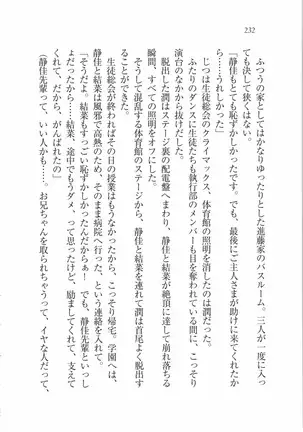 232
ふつうの家としてはかなりゆったりとした進藤家のバスルーム。三人が一度に入っ
ても決して狭くはない。
「静佳もとても恥ずかしかったです。でも、最後にご主人さまが助けに来てくれたか
ら……うれしかった」
じつは生徒総会のクライマックス、体育館の照明を消したのは潤だった。
ふたりのダンスに生徒たちも執行部のメンバーも目を奪われている間に、こっそり
演台のなかから抜けだした。
脱出した潤はステージ裏の配電盤へまわり、静佳と結菜が絶頂に達して崩れ落ちる
瞬間、すべての照明をオフにした。
そうして混乱する体育館のステージから、静佳と結菜を連れて潤は首尾よく脱出す
ることができた。
生徒総会が終わればその日の授業はもうなかったから、こっそり帰宅。学園へは、
静佳と結菜は風邪で高熱のため、そのまま病院へ行った、という連絡を入れて。
「そうだよ。結菜もすっごい恥ずかしかったんだからぁー　でも、静佳先輩といっし
ょだったから……結菜、途中でもうダメ、って思ったけど、励ましてくれて、支えて
くれて、だから、がんばれたの」
(静佳先輩って、いい人かも……。お兄ちゃんを取られちゃうって、イヤな人だって、